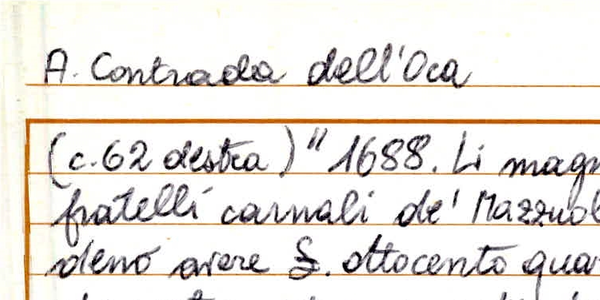 A. Contrada dell'Oca
(c. 62 destra) " 1688. Li magn
fratelli carnali de' Mazzuol
deno avere £. ottocento quar